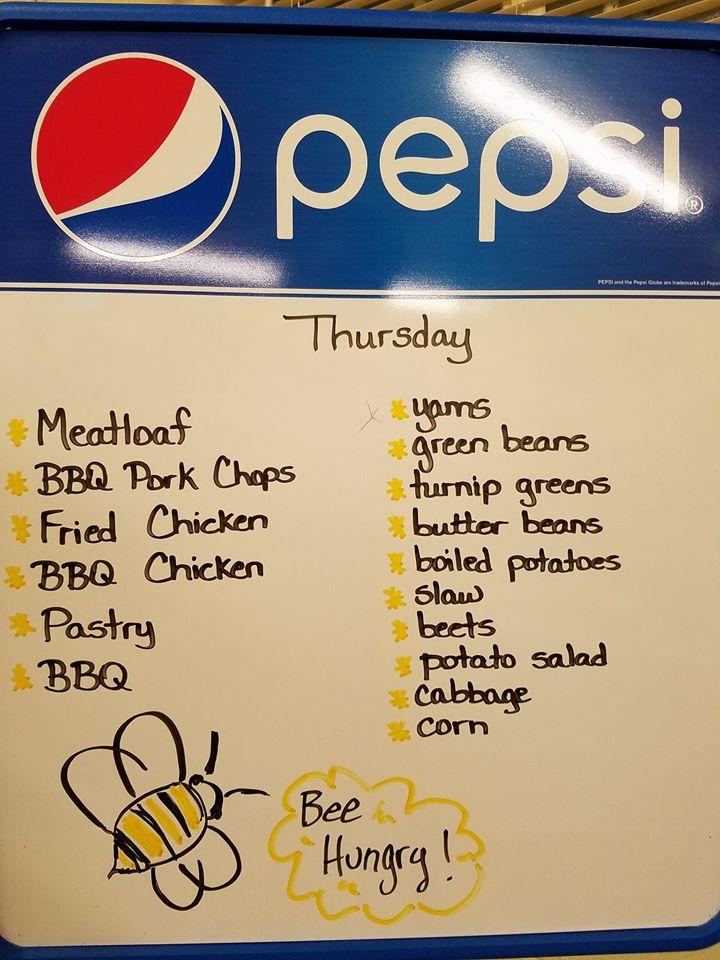 pepsi®
PEPSI and the Pepsi Globe are trademarks of Pepsi
Thursday
Meatloaf
BBQ Pork Chops
Fried Chicken
BBQ Chicken
Pastry
BBQ
yams
green beans
turnip greens
butter beans
boiled potatoes
slaw
beets
potato salad
cabbage
corn
Bee
Hungry!